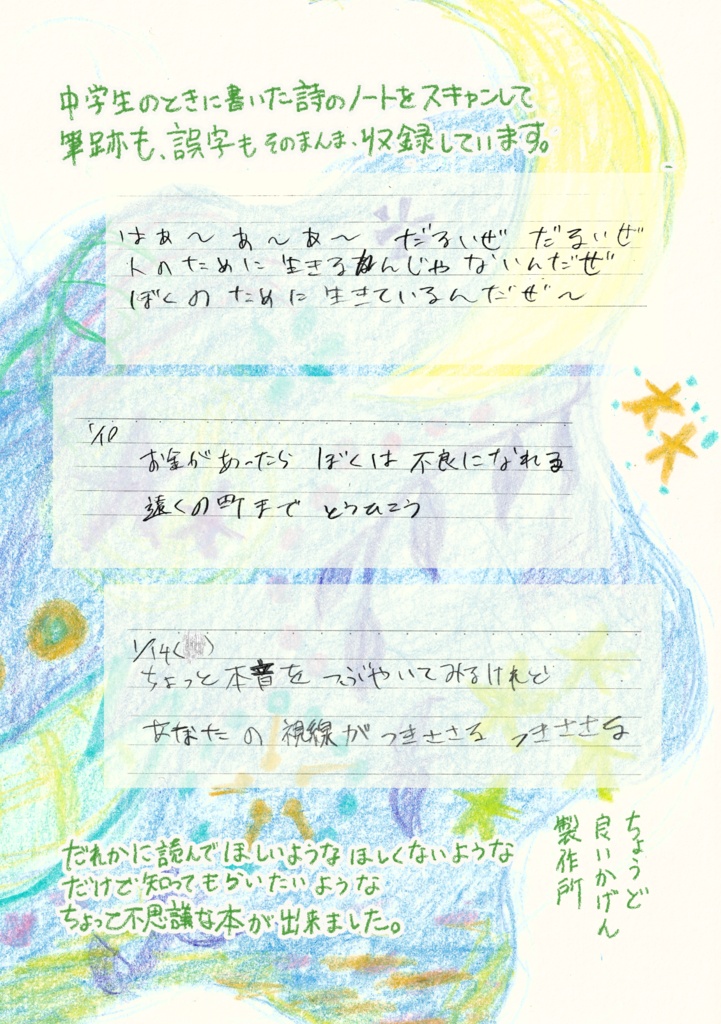 中学生のときに書いた詩のノートをスキャンして
筆跡も、誤字もそのまんま、収録しています。
はぁ〜 あ〜あ〜 だるいぜ だるいぜ
人のために 生きるなんじゃ ないんだぜ
ぼくの ために 生きているんだぜ〜
1/10
お金があったら ぼくは 不良になれる
遠くの町まで とうひこう
1/14( )
ちょっと本音を つぶやいてみるけれど
あなたの 視線が つきささる つきささる
だれかに読んでほしいような ほしくないような
だけど知ってもらいたいような
ちょっと不思議な本が出来ました。
ちょうど
良いかげん
製作所